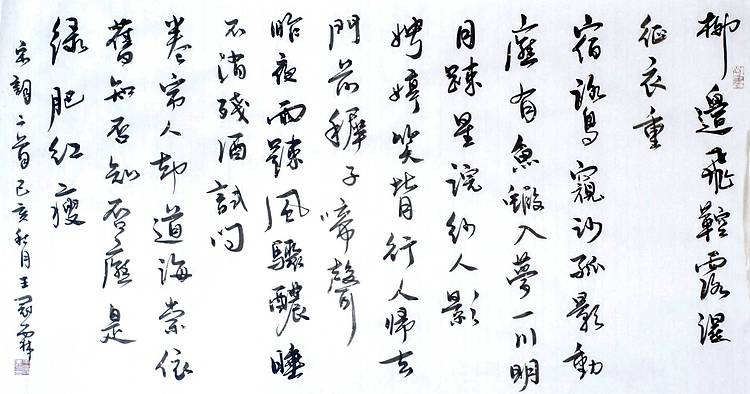 柳邊飛鞚露濕
征衣重
宿鹭窺沙孤影動
應有魚鰕入夢一川明
月踈星浣紗人影
娉婷笑背行人歸去
門前穉子啼聲
昨夜雨踈風驟醲睡
不消殘酒試问
卷帘人却道海棠依
舊知否知否應是
绿肥红瘦
宋詞二首己亥秋月王